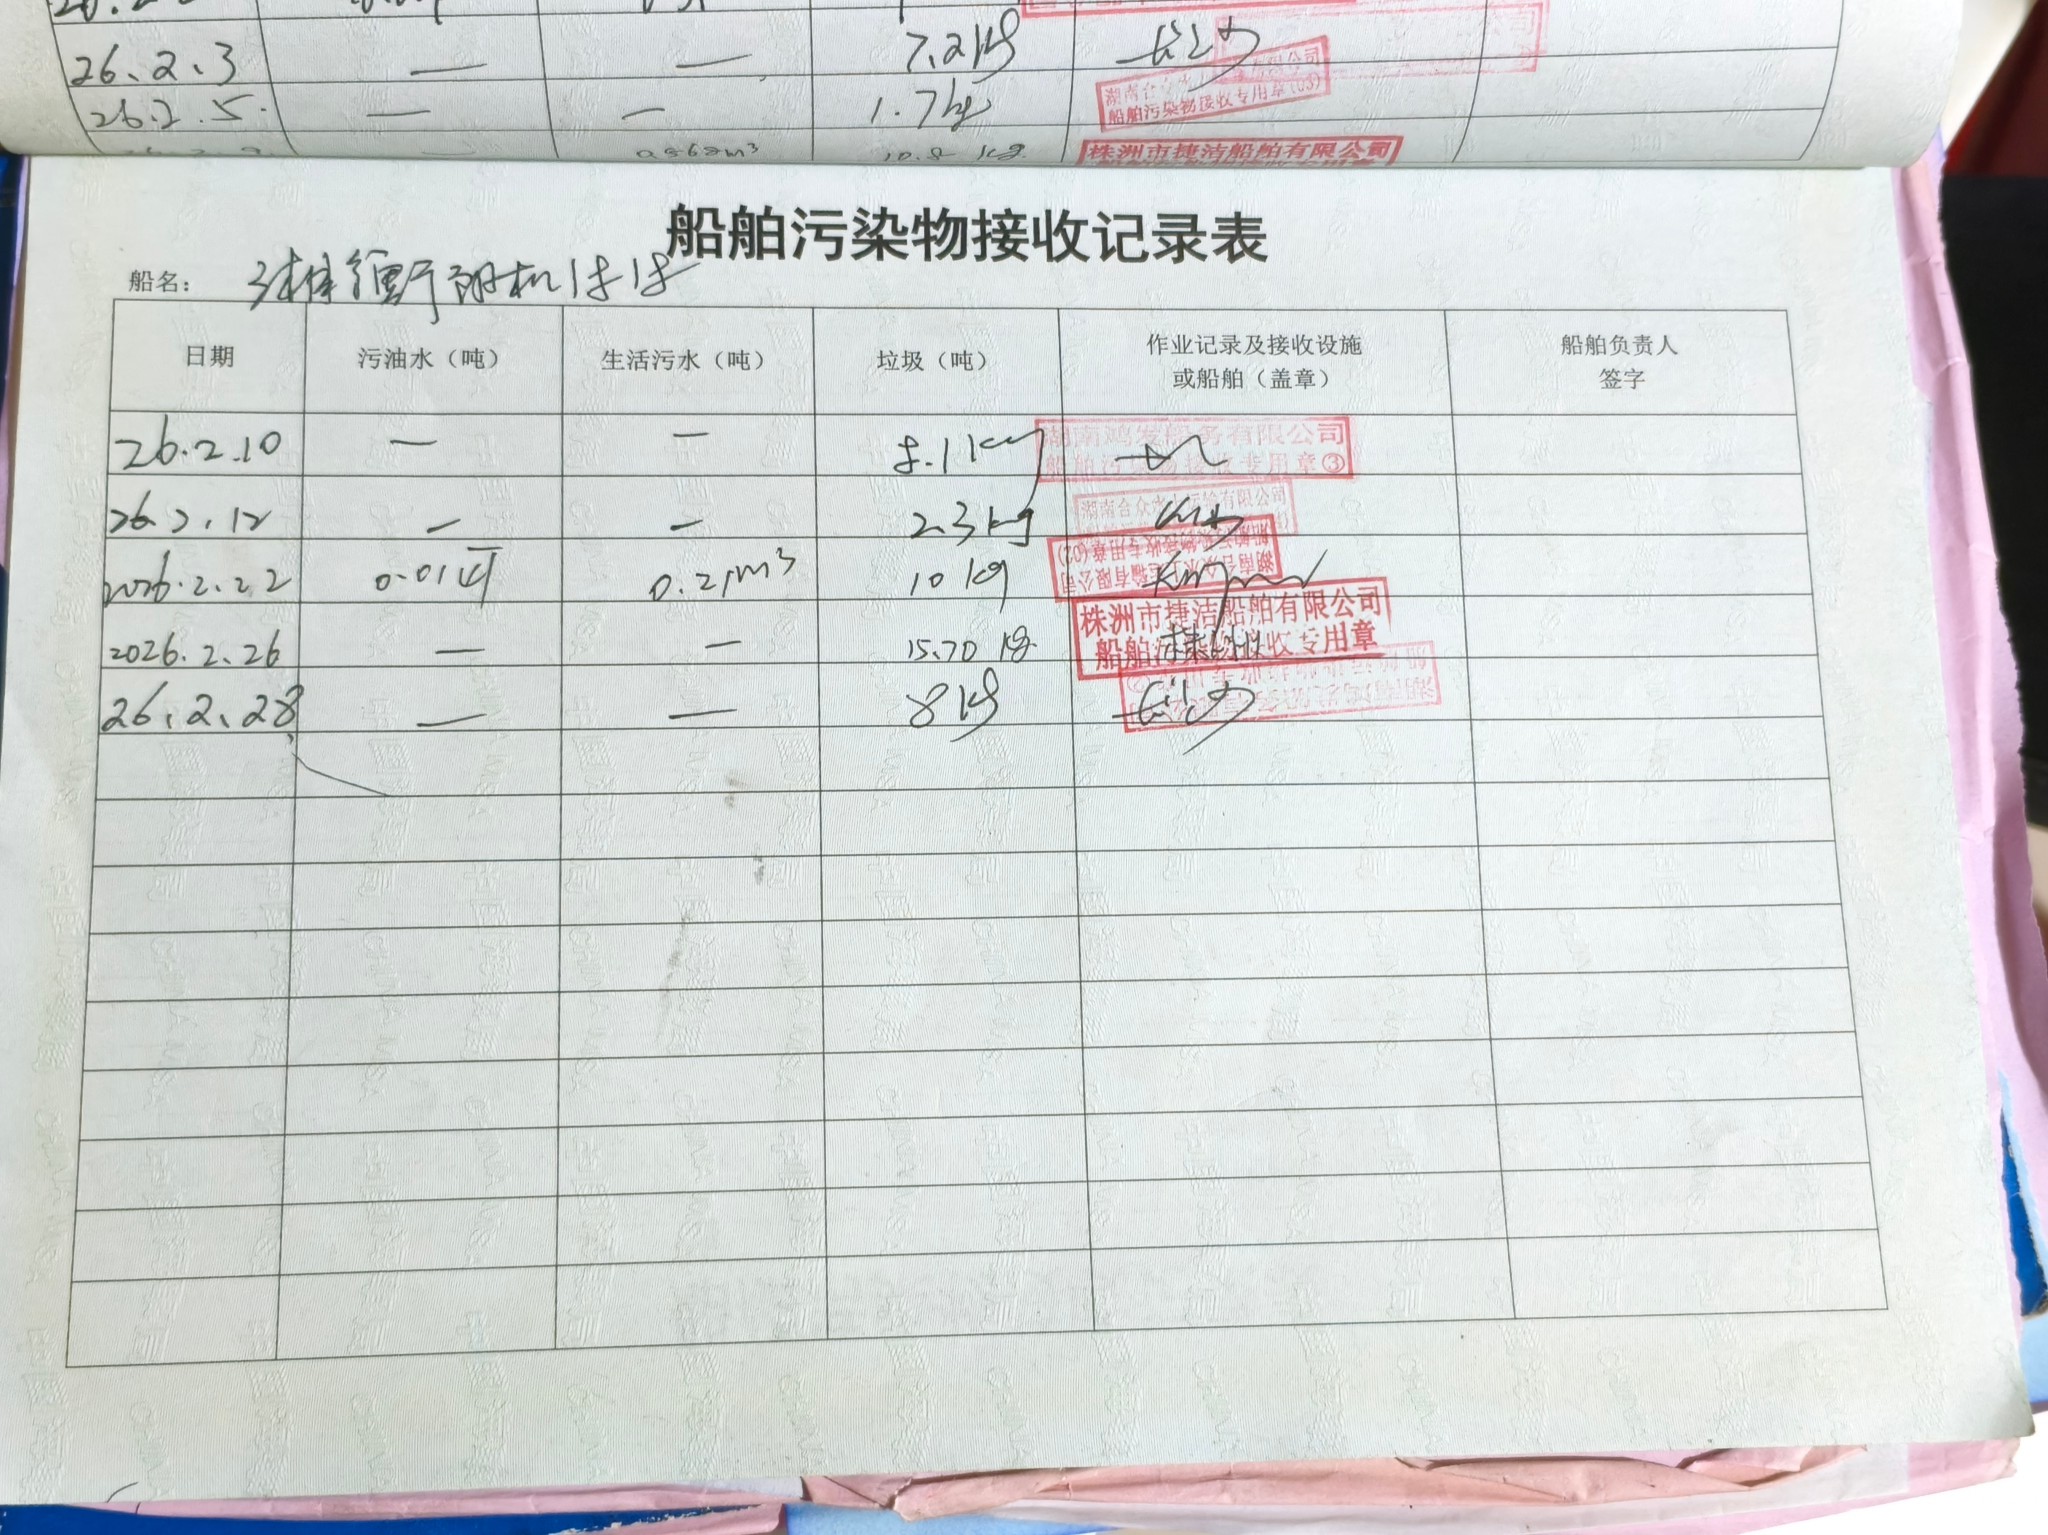 26.2.3 — — 7.2kg
26.2.5. — — 1.7kg
船舶污染物接收专用章(03)
10.8 kg
株洲市捷洁船舶有限公司
船舶污染物接收记录表
船名：
日期 污油水（吨） 生活污水（吨） 垃圾（吨） 作业记录及接收设施 船舶负责人
或船舶（盖章） 签字
26.2.10 — —
湖南鸿发船务有限公司
船舶污染物接收专用章③
26.2.12 — — 2.3kg
湖南合众水上运输有限公司
2026.2.22 0.01吨 0.21m³ 10kg
湖南合众水上运输有限公司
船舶污染物接收专用章(02)
2026.2.26 — — 15.70 kg
株洲市捷洁船舶有限公司
船舶污染物接收专用章
26.2.28 — — 8kg